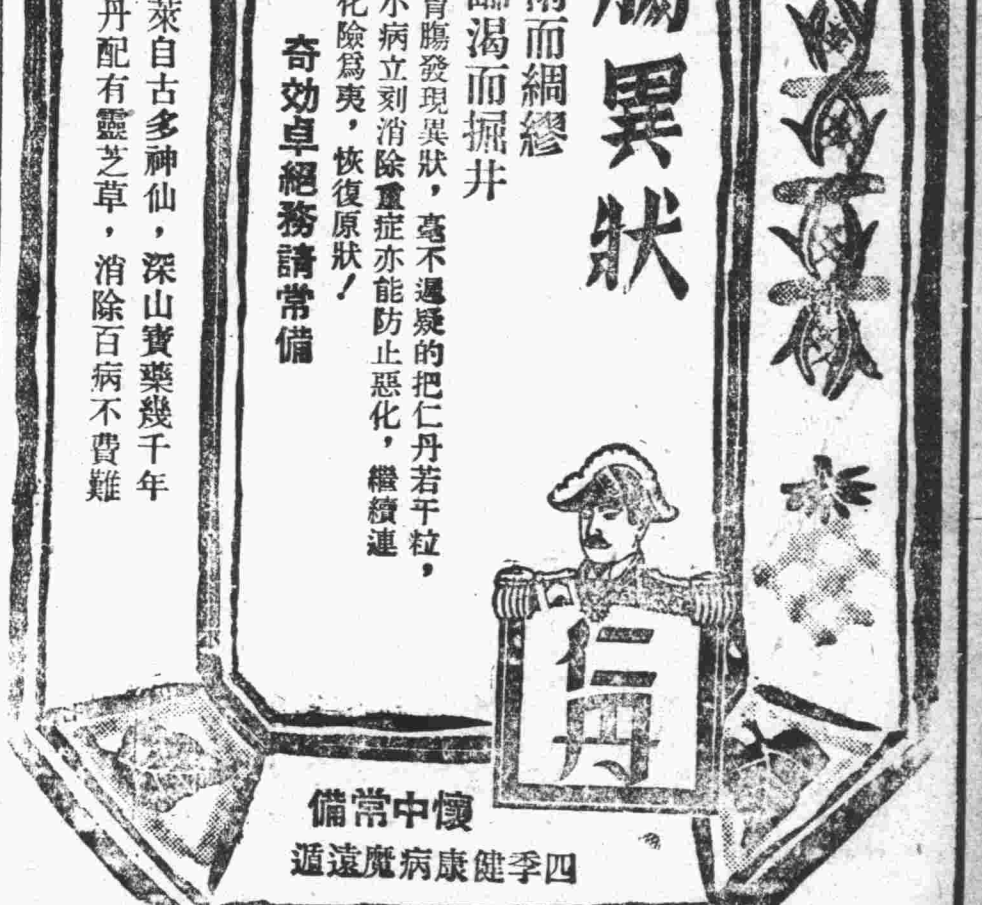 腸異狀
雨而綢繆
臨渴而掘井
胃腸發現異狀，毫不遲疑的把仁丹若干粒，
小病立刻消除重症亦能防止惡化，繼續連
化險爲夷，恢復原狀！
奇効卓絕務請常備
萊自古多神仙，深山寶藥幾千年
丹配有靈芝草，消除百病不費難
仁丹
懷中常備
四季健康病魔遠遁